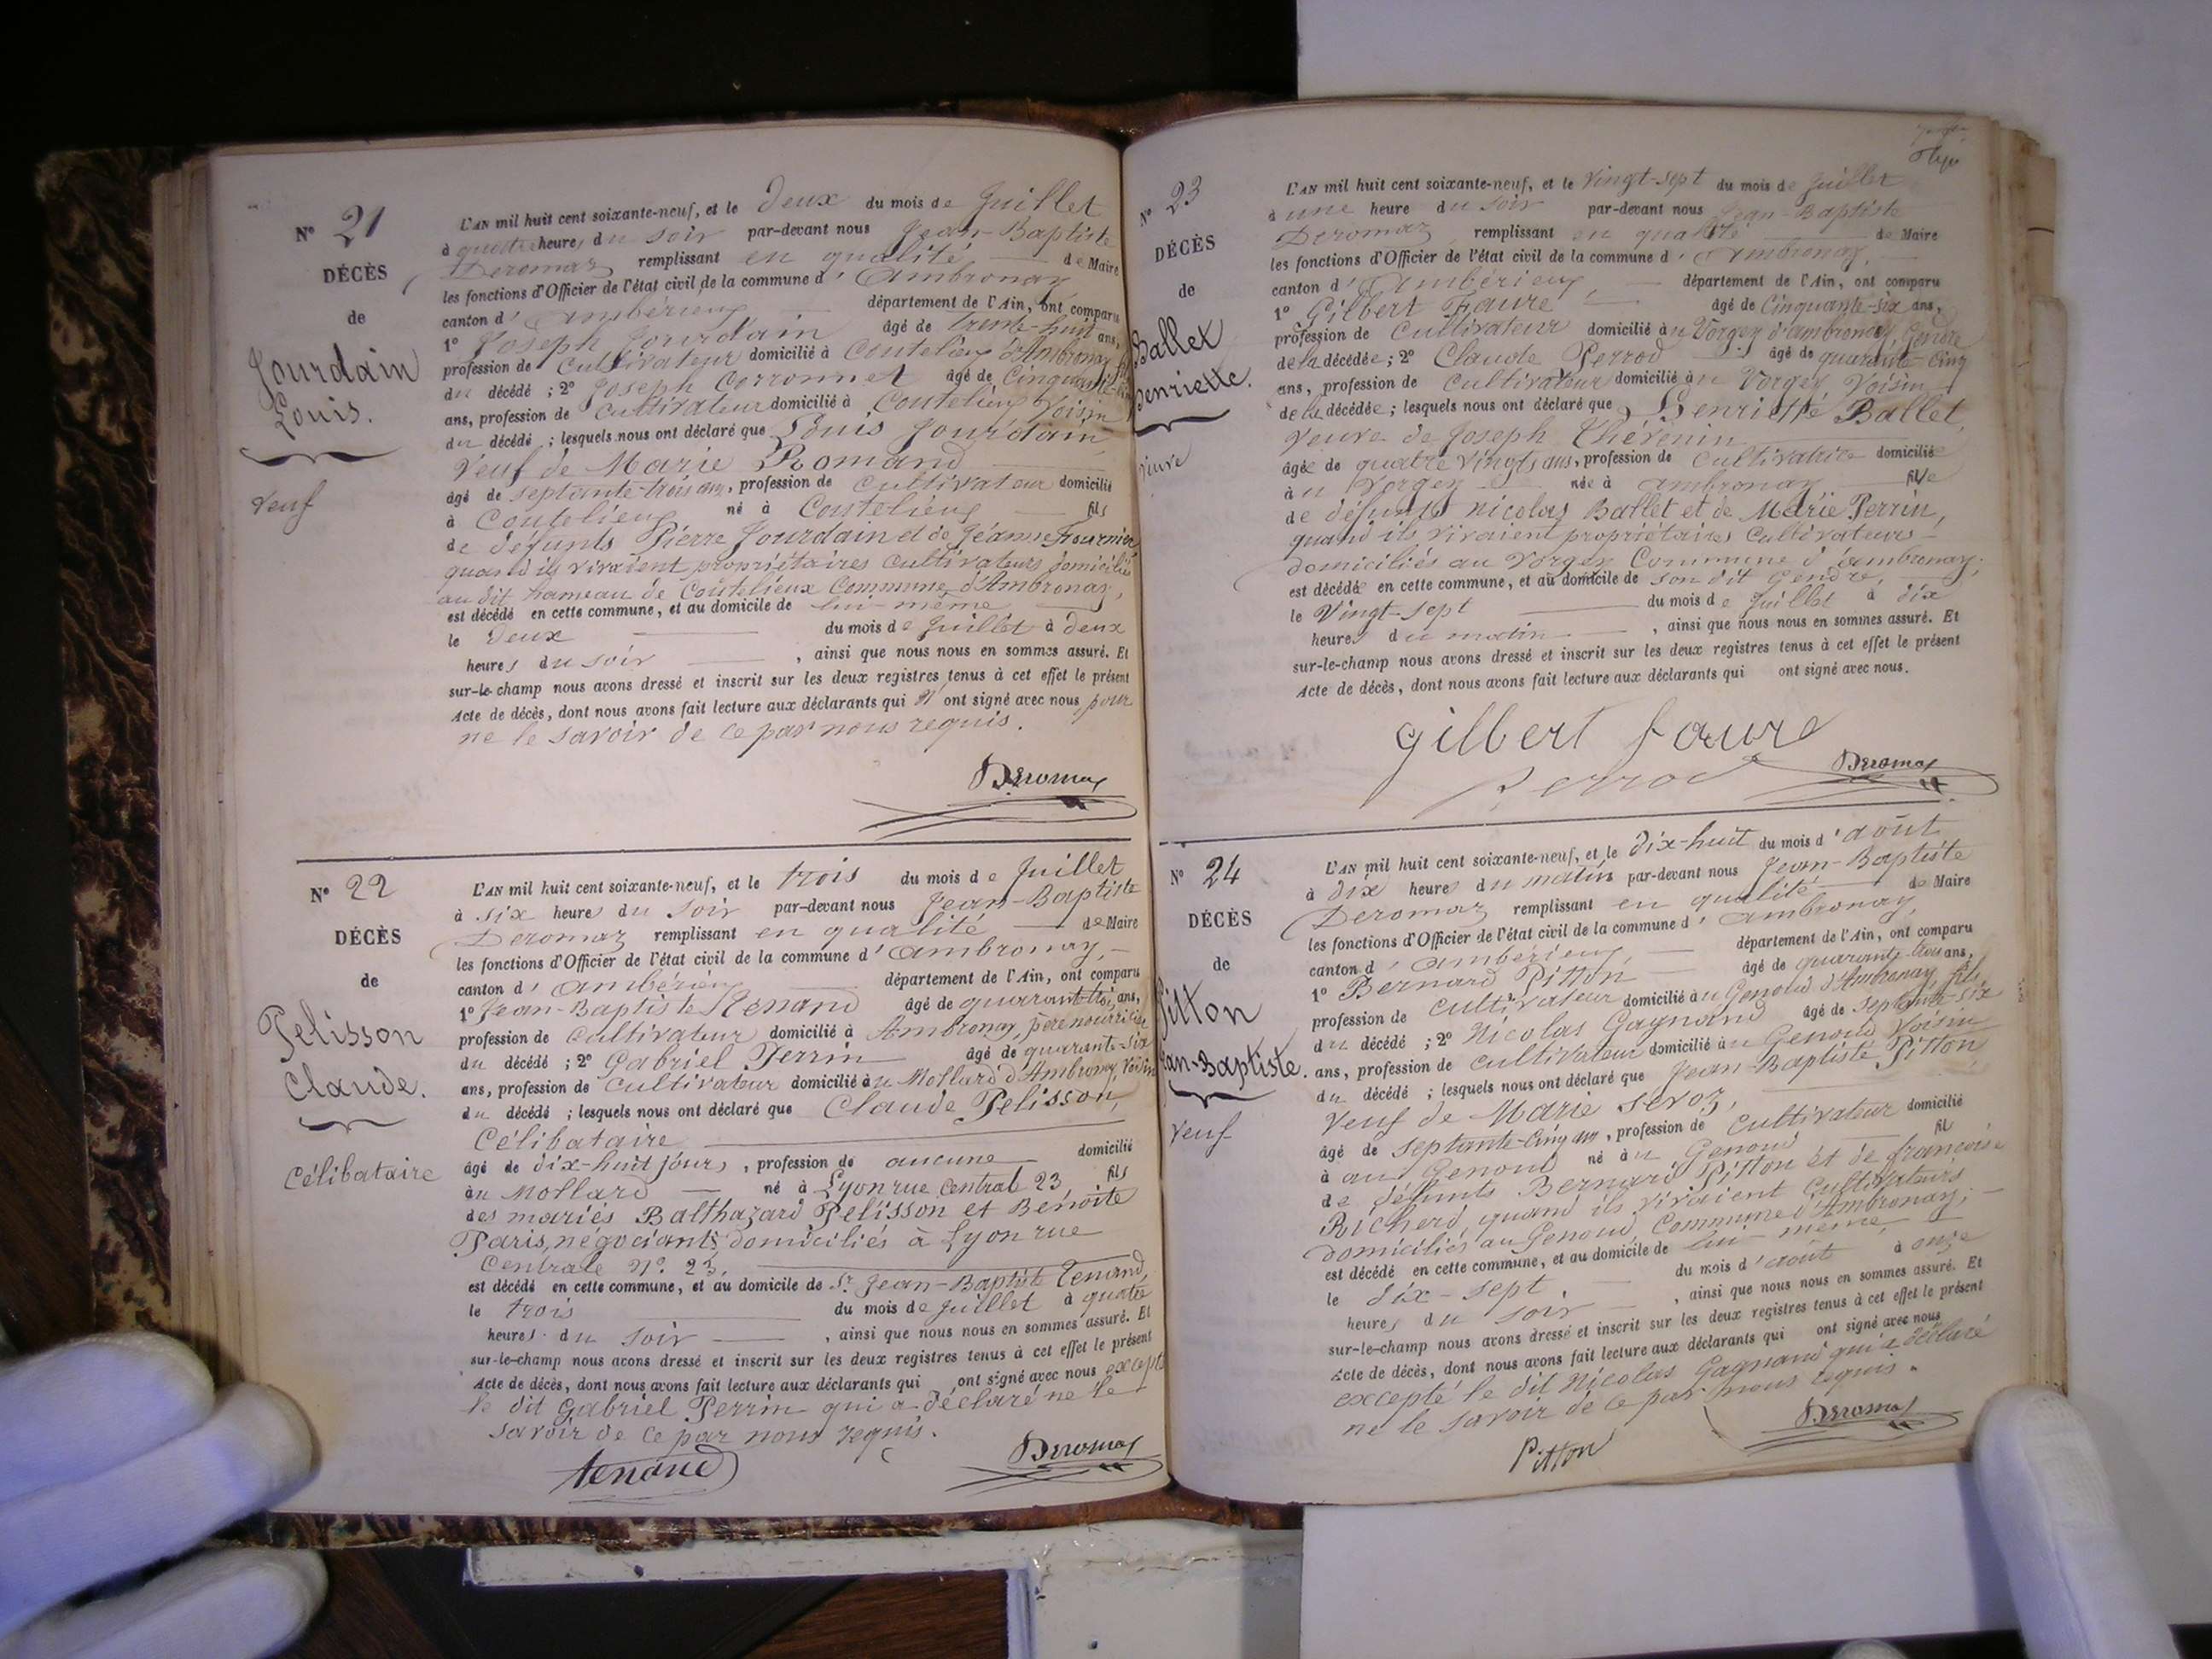 N° 21
DÉCÈS
de
Jourdain
Louis.
Veuf
L'AN mil huit cent soixante-neuf, et le deux du mois de Juillet
à quatre heures du soir par-devant nous Jean-Baptiste
Deromaz remplissant en qualité de Maire
les fonctions d'Officier de l'état civil de la commune d'Ambronay
canton d'Ambérieux département de l'Ain, ont comparu
1° Joseph Jourdain âgé de trente-huit ans,
profession de Cultivateur domicilié à Coutelieux d'Ambronay
du décédé ; 2° Joseph Corronnet âgé de Cinquante
ans, profession de Cultivateur domicilié à Coutelieux Voisin
du décédé ; lesquels nous ont déclaré que Louis Jourdain
Veuf de Marie Romand
âgé de septante-trois ans, profession de Cultivateur domicilié
à Coutelieux né à Coutelieux fils
de défunts Pierre Jourdain et de Jéanne Fournier
quand ils vivaient propriétaires Cultivateurs domiciliés
au dit hameau de Coutelieux Commune d'Ambronay,
est décédé en cette commune, et au domicile de lui-même
le deux du mois de Juillet à deux
heures du soir , ainsi que nous nous en sommes assuré. Et
sur-le-champ nous avons dressé et inscrit sur les deux registres tenus à cet effet le présent
Acte de décès, dont nous avons fait lecture aux déclarants qui n'ont signé avec nous pour
ne le savoir de ce par nous requis.
Deromaz
N° 22
DÉCÈS
de
Pelisson
Claude.
Célibataire
L'AN mil huit cent soixante-neuf, et le trois du mois de Juillet
à six heures du soir par-devant nous Jean-Baptiste
Deromaz remplissant en qualité de Maire
les fonctions d'Officier de l'état civil de la commune d'Ambronay,
canton d'Ambérieux département de l'Ain, ont comparu
1° Jean-Baptiste Tenand âgé de quarante-trois ans,
profession de Cultivateur domicilié à Ambronay, père nourricier
du décédé ; 2° Gabriel Perrin âgé de quarante-six
ans, profession de Cultivateur domicilié au Mollard d'Ambronay, Voisin
du décédé ; lesquels nous ont déclaré que Claude Pelisson,
Célibataire
âgé de dix-huit jours, profession de aucune domicilié
au Mollard né à Lyon rue Central 23, fils
des mariés Balthazard Pelisson et Benoite
Paris, négociants domiciliés à Lyon rue
Centrale N° 23,
est décédé en cette commune, et au domicile de Sr Jean-Baptiste Tenand,
le trois du mois de Juillet à quatre
heures du soir , ainsi que nous nous en sommes assuré. Et
sur-le-champ nous avons dressé et inscrit sur les deux registres tenus à cet effet le présent
Acte de décès, dont nous avons fait lecture aux déclarants qui ont signé avec nous excepté
le dit Gabriel Perrin qui a déclaré ne le
savoir de ce par nous requis.
tenand Deromaz
N° 23
DÉCÈS
de
Ballet
Henriette.
Veuve
L'AN mil huit cent soixante-neuf, et le Vingt-sept du mois de Juillet
à une heure du soir par-devant nous Jean-Baptiste
Deromaz remplissant en qualité de Maire
les fonctions d'Officier de l'état civil de la commune d'Ambronay,
canton d'Ambérieux, département de l'Ain, ont comparu
1° Gilbert Faure âgé de Cinquante-six ans,
profession de Cultivateur domicilié au Vorgey d'ambronay, Gendre
de la décédée ; 2° Claude Perrod âgé de quarante-Cinq
ans, profession de Cultivateur domicilié au Vorgey Voisin
de la décédée ; lesquels nous ont déclaré que Henriette Ballet,
Veuve de Joseph Thévenin
âgée de quatre vingts ans, profession de Cultivatrice domiciliée
au Vorgey née à Ambronay fille
de défunts Nicolas Ballet et de Marie Perrin,
quand ils vivaient propriétaires Cultivateurs
domiciliés au Vorgey Commune d'ambronay ;
est décédée en cette commune, et au domicile de son dit Gendre,
le Vingt-sept du mois de Juillet à dix
heures du matin , ainsi que nous nous en sommes assuré. Et
sur-le-champ nous avons dressé et inscrit sur les deux registres tenus à cet effet le présent
Acte de décès, dont nous avons fait lecture aux déclarants qui ont signé avec nous.
gilbert faure
perrod Deromaz
N° 24
DÉCÈS
de
Pitton
Jean-Baptiste.
Veuf
L'AN mil huit cent soixante-neuf, et le dix-huit du mois d'août
à dix heures du matin par-devant nous Jean-Baptiste
Deromaz remplissant en qualité de Maire
les fonctions d'Officier de l'état civil de la commune d'Ambronay,
canton d'Ambérieux, département de l'Ain, ont comparu
1° Bernard Pitton âgé de quarante-trois ans,
profession de Cultivateur domicilié au Genoud d'Ambronay fils
du décédé ; 2° Nicolas Gagnand âgé de septante-six
ans, profession de Cultivateur domicilié au Genoud Voisin
du décédé ; lesquels nous ont déclaré que Jean-Baptiste Pitton
Veuf de Marie Sevoz,
âgé de septante-Cinq ans, profession de Cultivateur domicilié
à au Genoud né au Genoud fil
de défunts Bernard Pitton et de françoise
Richerd, quand ils vivaient Cultivateurs
domiciliés au Genoud, Commune d'Ambronay ;
est décédé en cette commune, et au domicile de lui-même,
le dix-sept du mois d'août à onze
heures du soir , ainsi que nous nous en sommes assuré. Et
sur-le-champ nous avons dressé et inscrit sur les deux registres tenus à cet effet le présent
Acte de décès, dont nous avons fait lecture aux déclarants qui ont signé avec nous
excepté le dit Nicolas Gagnand qui a déclaré
ne le savoir de ce par nous requis.
Pitton Deromaz